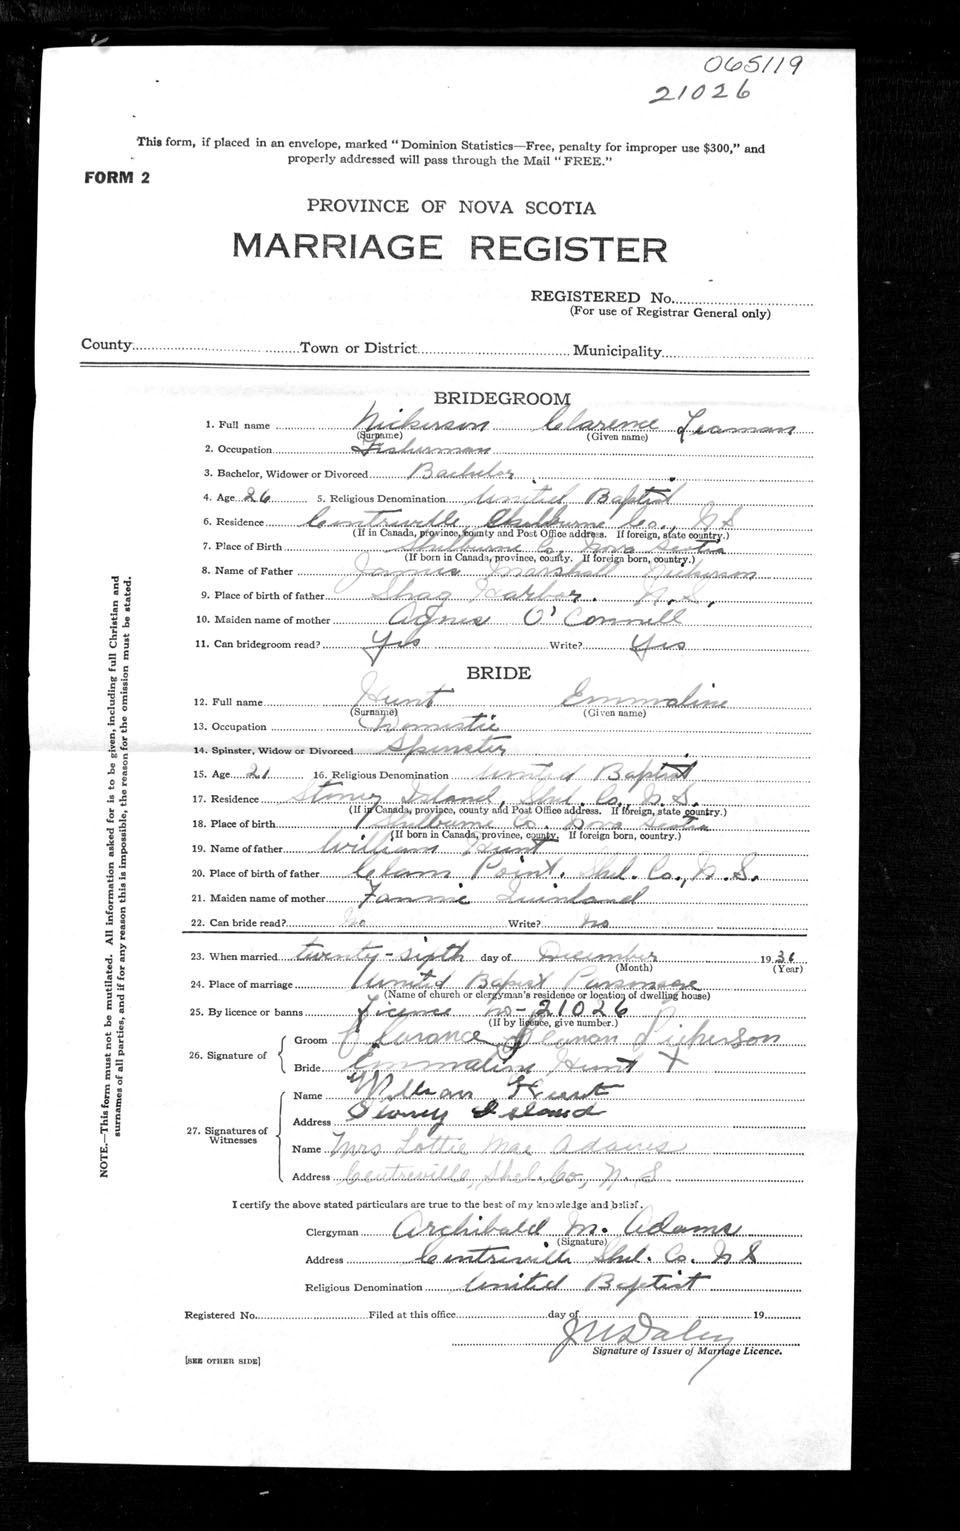 065119
21026
This form, if placed in an envelope, marked "Dominion Statistics—Free, penalty for improper use $300," and
properly addressed will pass through the Mail "FREE."
FORM 2
PROVINCE OF NOVA SCOTIA
MARRIAGE REGISTER
REGISTERED No.
(For use of Registrar General only)
County Town or District Municipality
BRIDEGROOM
1. Full name Nickerson Clarence Leaman
(Surname) (Given name)
2. Occupation Fisherman
3. Bachelor, Widower or Divorced Bachelor
4. Age 26 5. Religious Denomination United Baptist
6. Residence Centreville Shelburne Co., N S
(If in Canada, province, county and Post Office address. If foreign, state country.)
7. Place of Birth Shelburne Co. Nova Scotia
(If born in Canada, province, county. If foreign born, country.)
8. Name of Father James Marshall Nickerson
9. Place of birth of father Shag Harbor. N.S.
10. Maiden name of mother Agnes O'Connell
11. Can bridegroom read? Yes Write? Yes
BRIDE
12. Full name Hunt Emmaline
(Surname) (Given name)
13. Occupation Domestic
14. Spinster, Widow or Divorced Spinster
15. Age 21 16. Religious Denomination United Baptist
17. Residence Stoney Island, Shel. Co. N.S.
(If in Canada, province, county and Post Office address. If foreign, state country.)
18. Place of birth Shelburne Co., Nova Scotia
(If born in Canada, province, county. If foreign born, country.)
19. Name of father William Hunt
20. Place of birth of father Clam Point. Shel. Co., N.S.
21. Maiden name of mother Fannie Quinland
22. Can bride read? No Write? No
23. When married twenty-sixth day of December 1936
(Month) (Year)
24. Place of marriage United Baptist Parsonage
(Name of church or clergyman's residence or location of dwelling house)
25. By licence or banns Licence No-21026
(If by licence, give number.)
26. Signature of
Groom Clarance Leaman Nickerson
Bride Emmaline Hunt X
27. Signatures of Witnesses
Name William Hunt
Address Stoney Island
Name Mrs Lottie Mae Adams
Address Centreville, Shel. Co, N. S
I certify the above stated particulars are true to the best of my knowledge and belief.
Clergyman Archibald M. Adams
(Signature)
Address Centreville Shel. Co. N S
Religious Denomination United Baptist
Registered No. Filed at this office day of 19
Daley
Signature of Issuer of Marriage Licence.
[SEE OTHER SIDE]
NOTE.—This form must not be mutilated. All information asked for is to be given, including full Christian and
surnames of all parties, and if for any reason this is impossible, the reason for the omission must be stated.